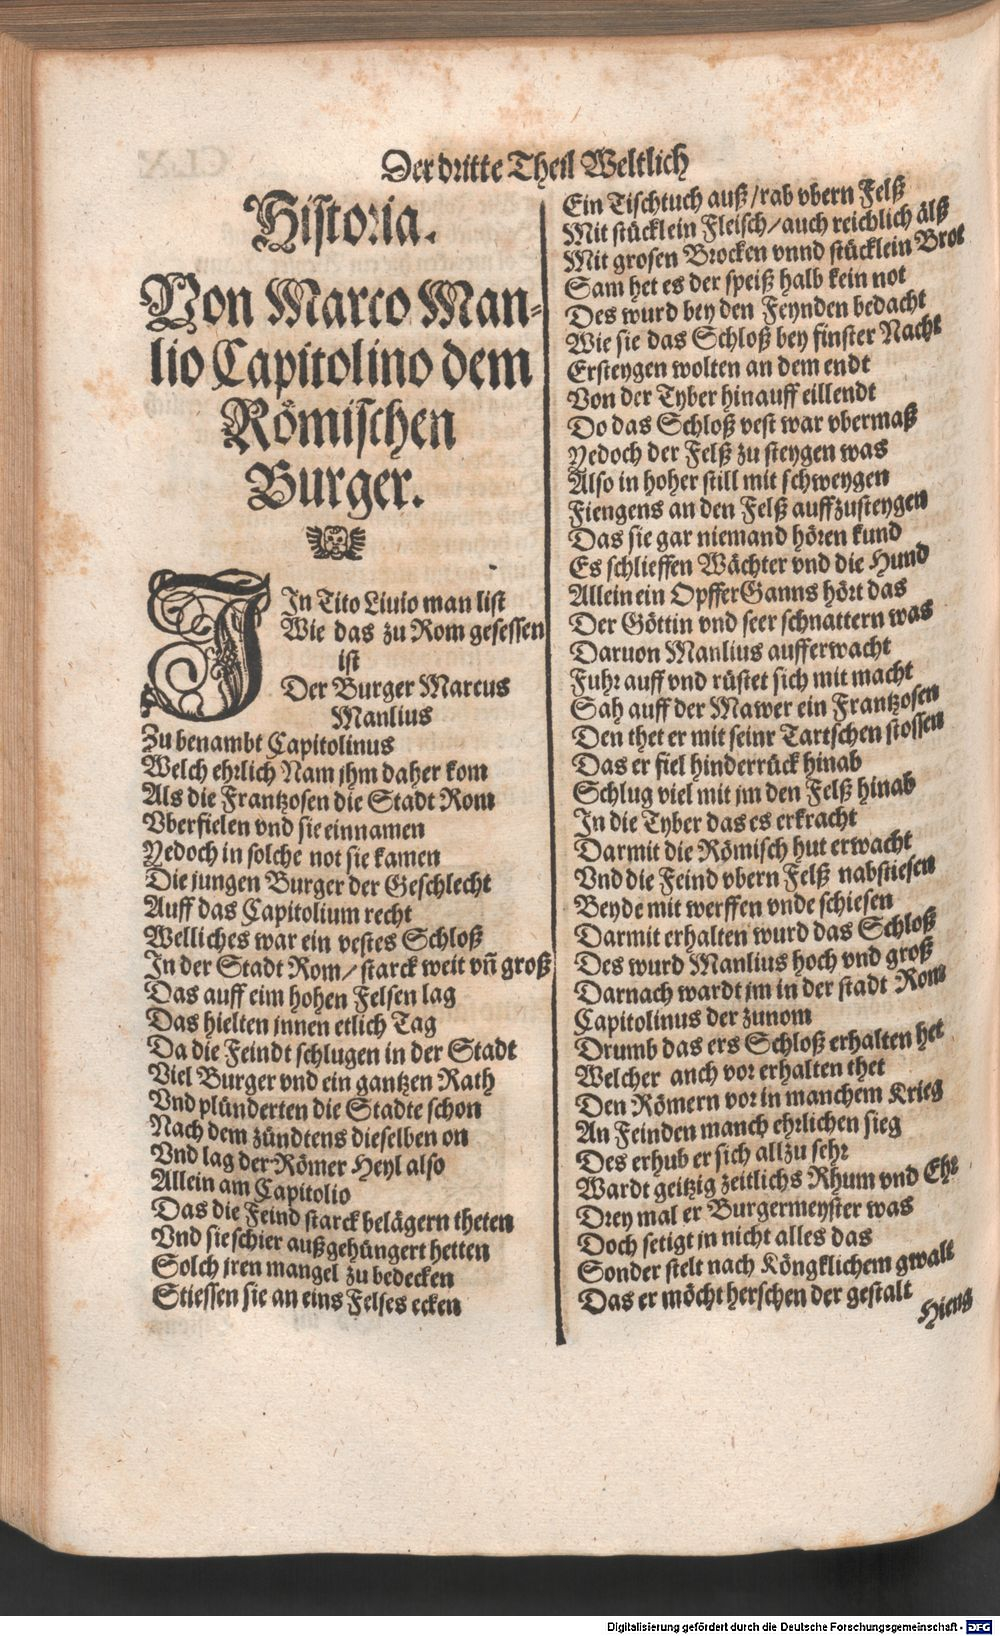 Der dritte Theil Weltlich
Historia.
Von Marco Man-
lio Capitolino dem
Römischen
Burger.
In Tito Liuio man list
Wie das zu Rom gesessen
ist
Der Burger Marcus
Manlius
Zu benambt Capitolinus
Welch ehrlich Nam jhm daher kom
Als die Frantzosen die Stadt Rom
Vberfielen vnd sie einnamen
Yedoch in solche not sie kamen
Die jungen Burger der Geschlecht
Auff das Capitolium recht
Welliches war ein vestes Schloß
In der Stadt Rom/ starck weit vñ groß
Das auff eim hohen Felsen lag
Das hielten jnnen etlich Tag
Da die Feindt schlugen in der Stadt
Viel Burger vnd ein gantzen Rath
Vnd plünderten die Stadte schon
Nach dem zündtens dieselben on
Vnd lag der Römer Heyl also
Allein am Capitolio
Das die Feind starck belägern theten
Vnd sie schier außgehüngert hetten
Solch jren mangel zu bedecken
Stiessen sie an eins Felses ecken
Ein Tischtuch auß/ rab vbern Felß
Mit stücklein Fleisch/ auch reichlich älß
Mit grosen Brocken vnnd stücklein Brot
Sam het es der speiß halb kein not
Des wurd bey den Feynden bedacht
Wie sie das Schloß bey finster Nacht
Ersteygen wolten an dem endt
Von der Tyber hinauff eillendt
Do das Schloß vest war vbermaß
Yedoch der Felß zu steygen was
Also in hoher still mit schweygen
Fiengens an den Felß auffzusteygen
Das sie gar niemand hören kund
Es schlieffen Wächter vnd die Hund
Allein ein OpfferGanns hört das
Der Göttin vnd seer schnattern was
Daruon Manlius aufferwacht
Fuhr auff vnd rüstet sich mit macht
Sah auff der Mawer ein Frantzosen
Den thet er mit seinr Tartschen stossen
Das er fiel hinderrück hinab
Schlug viel mit jm den Felß hinab
In die Tyber das es erkracht
Darmit die Römisch hut erwacht
Vnd die Feind vbern Felß nabstiesen
Beyde mit werffen vnde schiesen
Darmit erhalten wurd das Schloß
Des wurd Manlius hoch vnd groß
Darnach wardt jm in der stadt Rom
Capitolinus der zunom
Drumb das ers Schloß erhalten het
Welcher anch vor erhalten thet
Den Römern vor in manchem Krieg
An Feinden manch ehrlichen sieg
Des erhub er sich allzu sehr
Wardt geitzig zeitlichs Rhum vnd Ehr
Drey mal er Burgermeyster was
Doch setigt jn nicht alles das
Sonder stelt nach Köngklichem gwalt
Das er möcht herschen der gestalt
Hieng
Digitalisierung gefördert durch die Deutsche Forschungsgemeinschaft - DFG